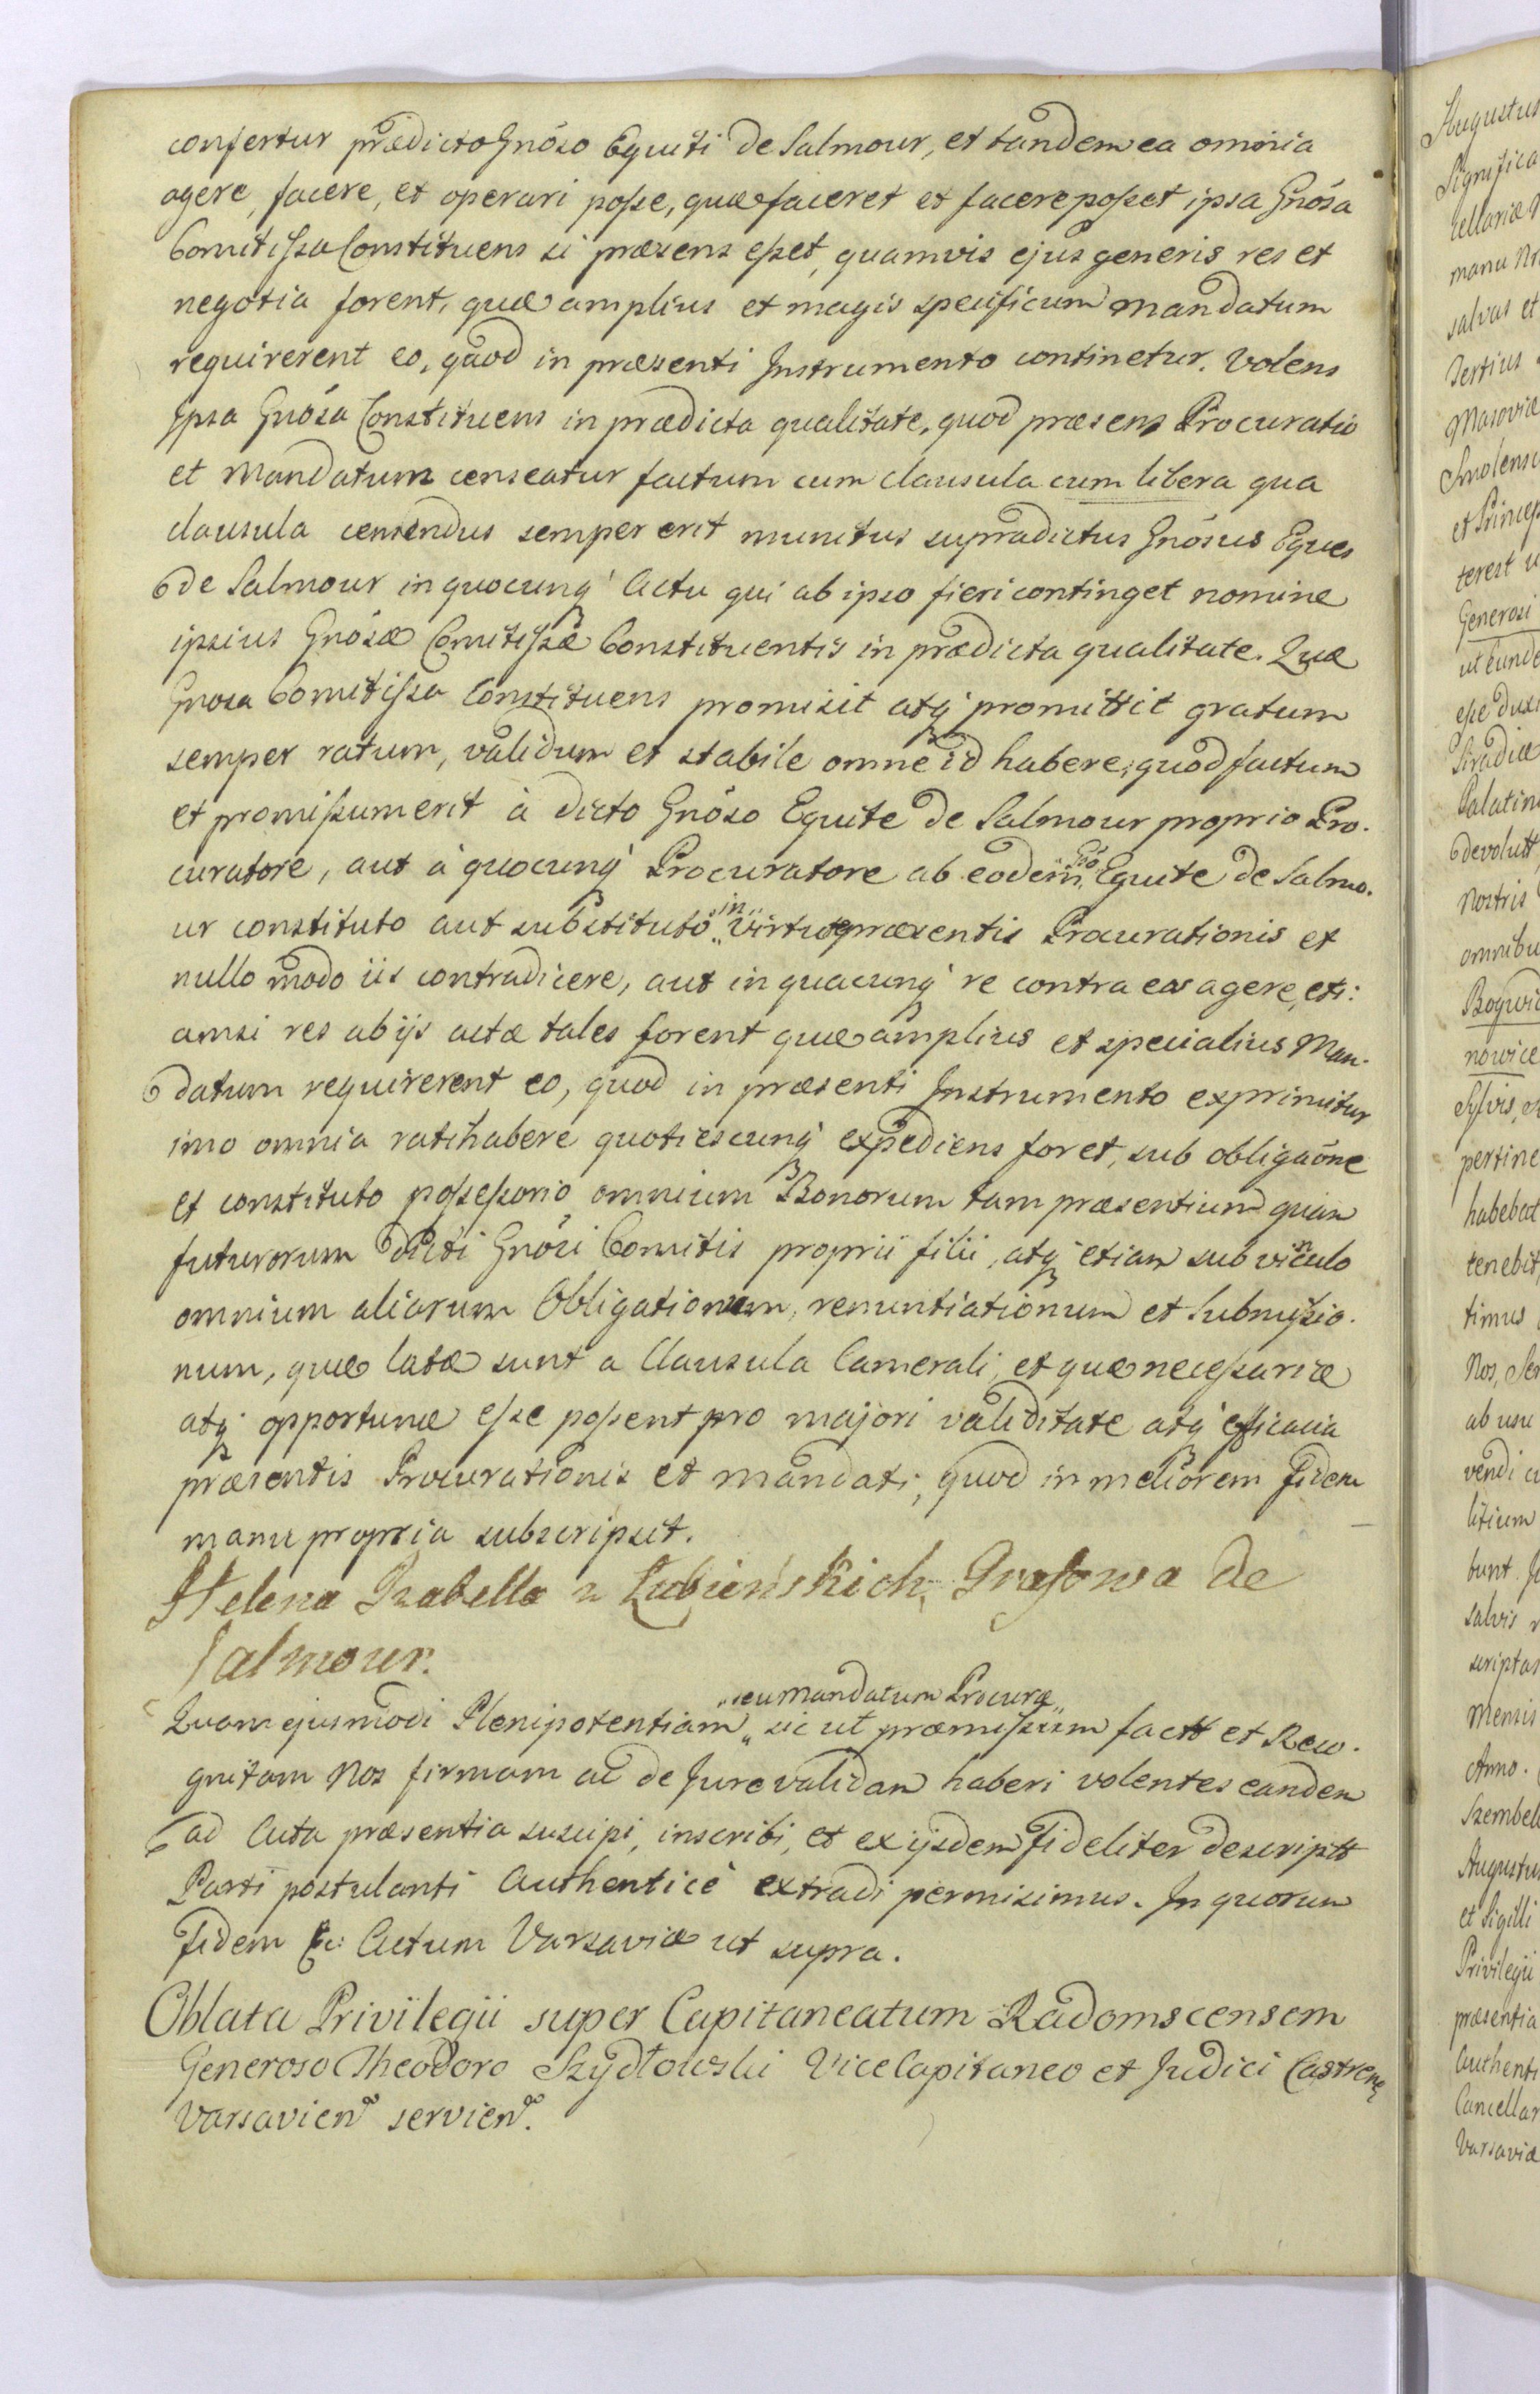 confertur prædicto Gnõso Equiti de Salmour, et tandem ea omnia
agere, facere, et operari posse, quæ faceret et facere posset ipsa Gnõsa
Comitissa Constituens si præsens esset, quamvis ejus generis res et
negotia forent, quæ amplius et magis specificum mandatum
requirerent eo, quod in præsenti Instrumento continetur. Volens
Ipsa Gnõsa Constituens in prædicta qualitate, quod præsens Procuratio
et Mandatum censeatur factum cum clausula cum libera qua
clausula censendus semper erit munitus supradictus Gnõsus Eques
de Salmour in quocunq́ Actu qui ab ipso fieri continget nomine
ipsius Gnõsæ Comitissæ Constituentis in prædicta qualitate. Quæ
Gnosa Comitissa Constituens promisit atq́ promittit gratum
semper ratum, validum et stabile omne id habere, quod factum
et promissum erit à dicto Gnõso Equite de Salmour proprio Pro.
curatore, aut à quocunq́ Procuratore ab eodem Gõ Equite de Salmo.
ur constituto aut substituto „in„ virtute præsentis Procurationis et
nullo modo iis contradicere, aut in quacunq́ re contra eas agere, eti:
amsi res ab ijs actæ tales forent quæ amplius et specialius Man.
datum requirerent eo, quod in præsenti Instrumento exprimitur
imo omnia ratihabere quotiescunq́ expediens foret, sub obligaõne
et constituto possessorio omnium Bonorum tam præsentium quam
futurorum dicti Gnõsi Comitis proprii filii, atq́ etiam sub vinculo
omnium aliarum Obligationum, renuntiationum et Submissio.
num, quæ latæ sunt a Clausula Camerali, et quæ necessariæ
atq́ opportunæ esse possent pro majori validitate atq́ efficacia
præsentis Procurationis et mandati, quod in meliorem fidem
manu propria subscripsit.
Helena Izabella z Łubieńskich, Grafowa de
Salmour.
„seu mandatum Procuræ„
Quam ejusmodi Plenipotentiam „ sic ut præmissum factt et Reco.
gnitam Nos firmam ac de Jure validam haberi volentes eandem
ad Acta præsentia suscipi, inscribi, et ex ijsdem fideliter descriptt
Parti postulanti Authenticè extradi permisimus. In quorum
Fidem &c: Actum Varsaviæ ut supra.
Oblata Privilegii super Capitaneatum Radomscensem
Generoso Theodoro Szydłowski ViceCapitaneo et Judici Castren
Varsavien servien.
Augustus
Significa
manu
salvas et
Tertius
Masoviæ
Smolensc
et Princep
terest
Generosi
ut eunde
esse duxi
Siradiæ
Palatin
devolutt
Nostris
omnibu
nowice
Sylvis,
pertine
habebat
tenebit,
timus
Nos, Ser
ab usu
vendi
liticum
bunt.
salvis
scriptas
Mensis
Anno.
Szembek
Augustus
et Sigilli
Privilegii
præsentia
Authenti
Cancellar
Varsaviæ